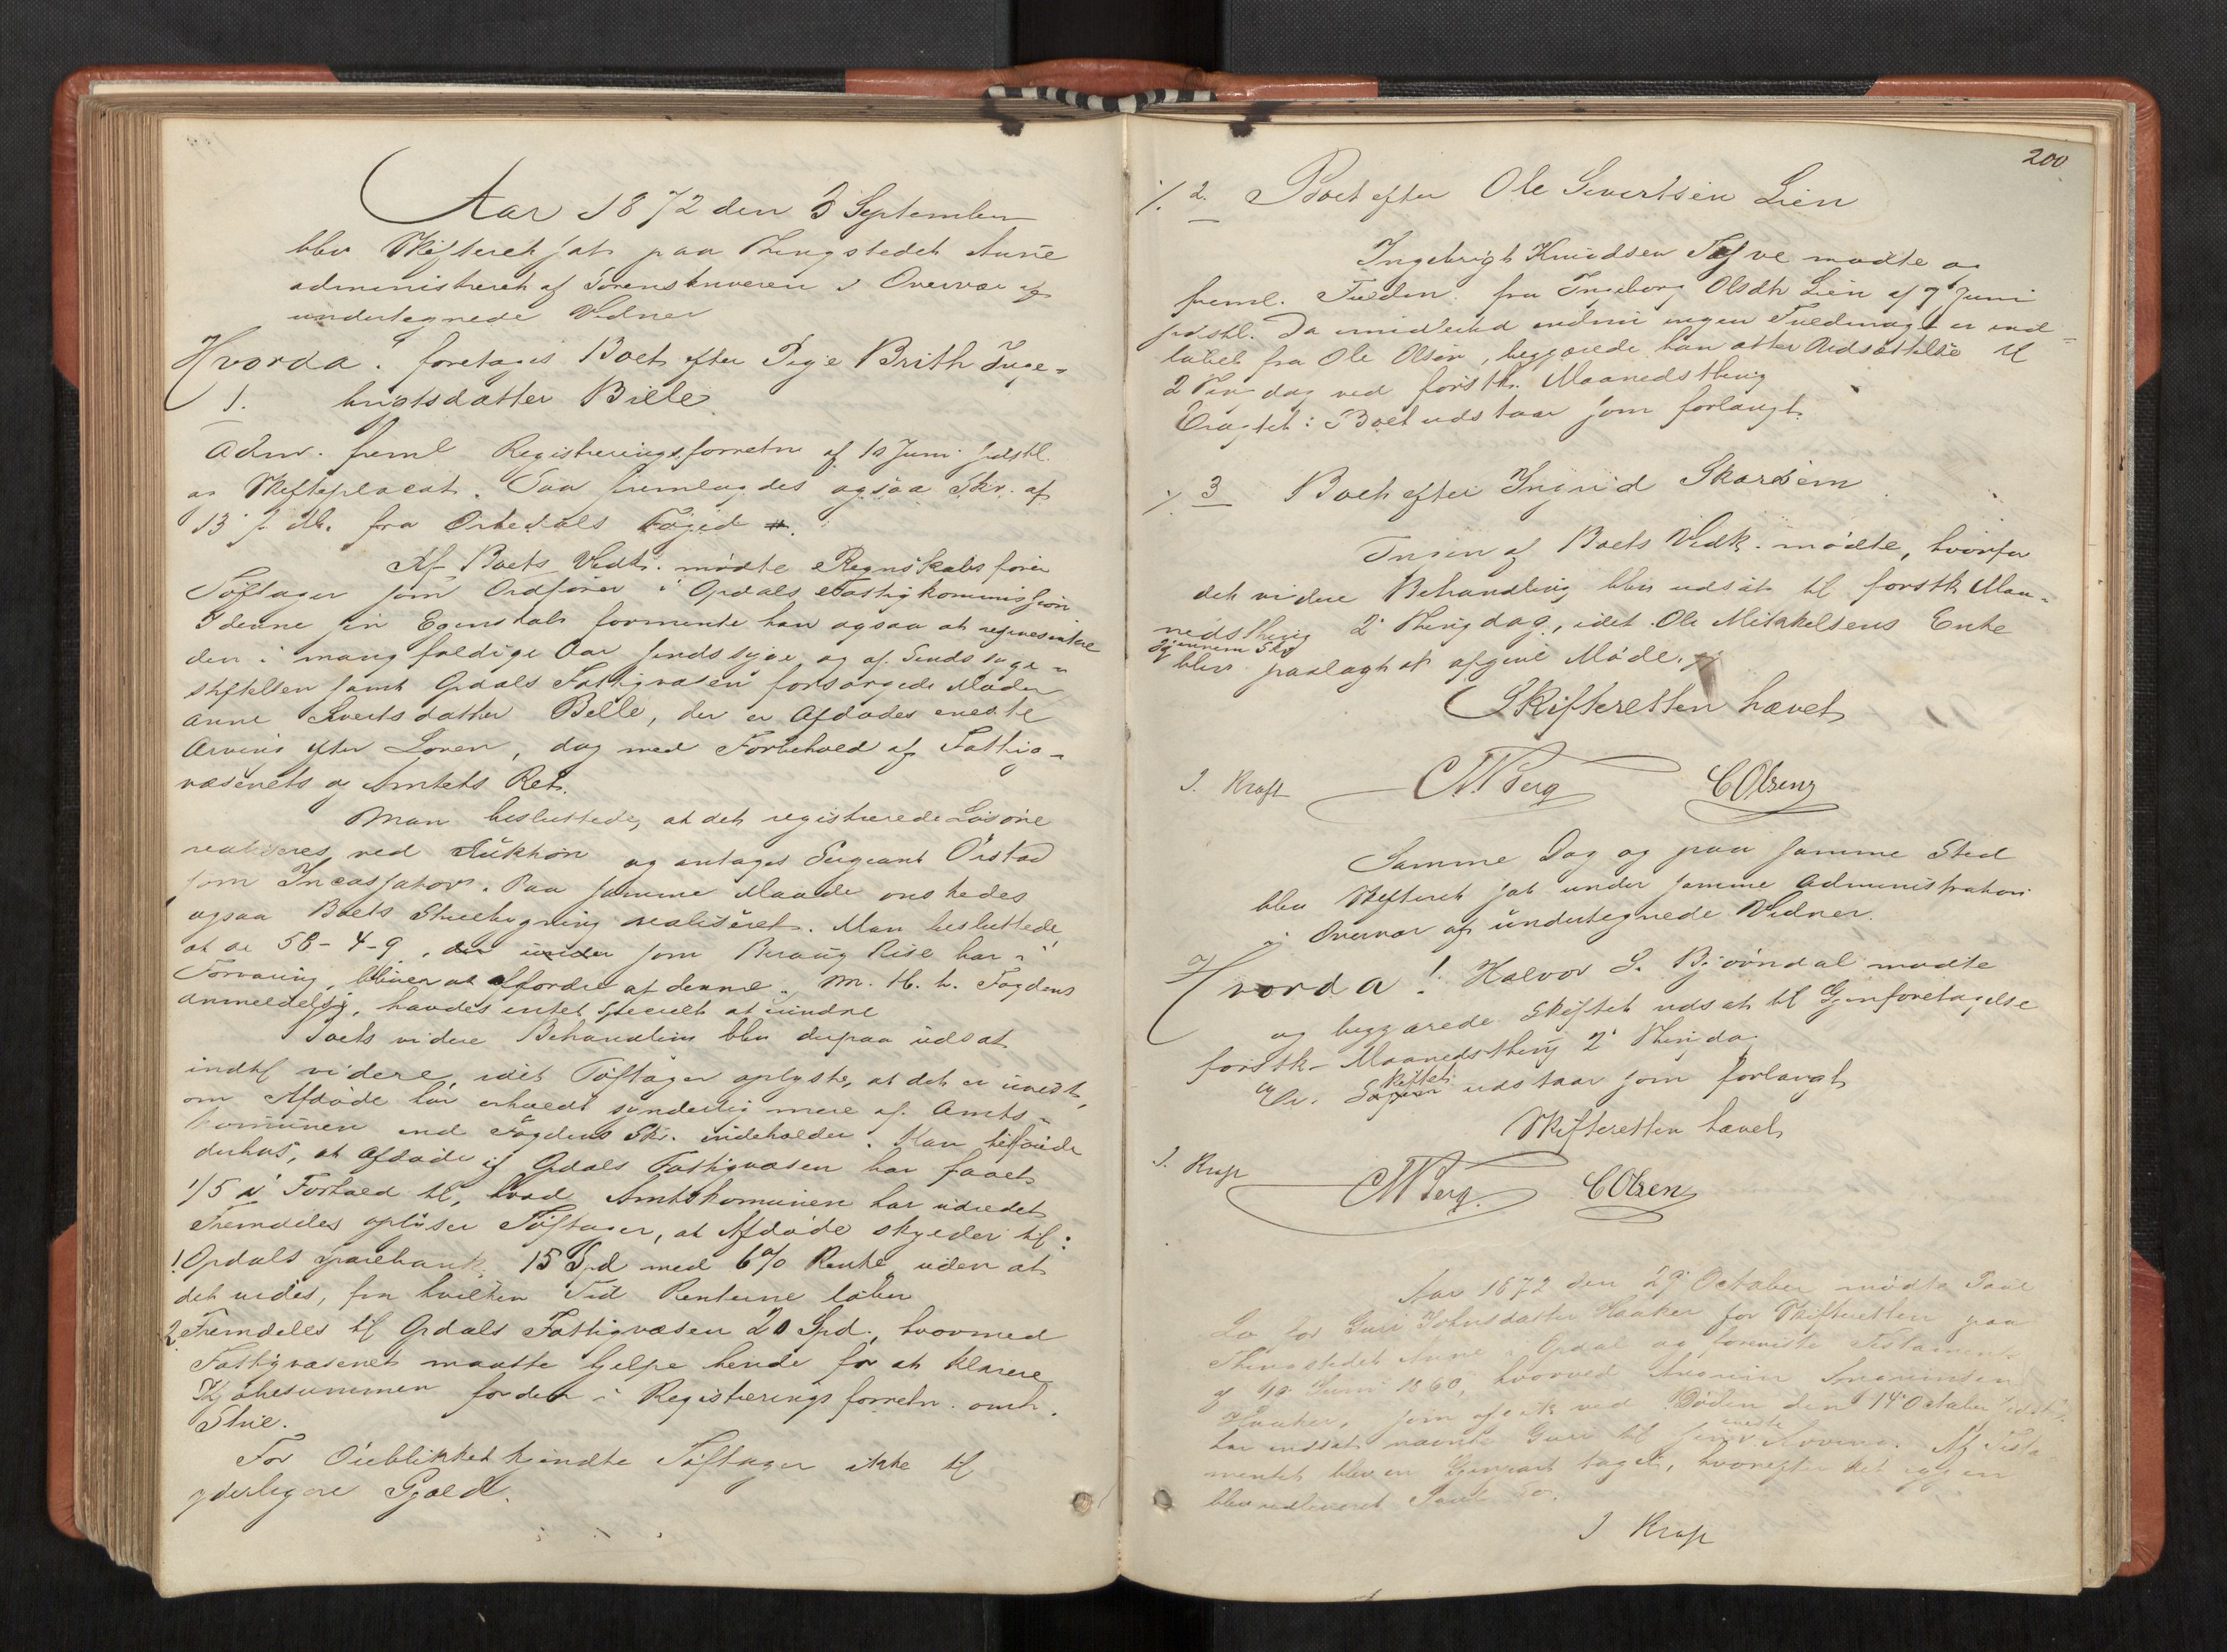 Aar 1872 den 3 September
blev Skifteret sat paa Thingstedet Aune
administreret af Sorenskriveren i Overvær af
undertegnede Vidner
Hvorda: foretages Boet efter Pige Brith Inge-
1. brigtsdatter Bille.
Adm. freml Registreringsforretn af 10 Juni sidstl.
og Skifteplacat. Saa fremlagdes ogsaa Skr. af
13 f. M. fra Orkedals Foged.
Af Boets Vedk. mødte Regnskabsfører
Tøftager som Ordfører i Opdals Fattigkommission
I denne sin Egenskab formente han ogsaa at representere
den i mangfoldige Aar sindssyge og af Sindssyge-
stiftelsen samt Opdals Fattigvæsen forsørgede Moder
Anne Sivertsdatter Bille, der er Afdødes eneste
Arving efter Loven, dog med Forbehold af Fattig-
væsenets og Amtets Ret.
Man besluttede, at det registrerede Løsøre
realiseres ved Auktion og antages Sergeant Ørstad
som Incassator. Paa samme Maade onskedes
ogsaa Boets Stuebygning realiseret. Man besluttede
at de 58-4-9, som Rise har i
Forvaring, bliver at affordre af denne. M. H. t. Fogdens
Anmeldelse, havdes intet specielt at erindre
Boets videre Behandling blev derpaa udsat
indtil videre, idet Tøftager oplyste, at det er uvist,
om Afdøde har erholdt synderlig mere af Amts-
komunen end Fogdens Skr. indeholder. Han tilføiede
derhos, at Afdøde af Opdals Fattigvæsen har faaet
1/5 i Forhold til, hvad Amtskomunen har udredet
Fremdeles oplyser Tøftager, at Afdøde skylder til:
1. Opdals Sparebank 15 Spd med 6% Rente, uden at
det vides, fra hvilken Tid Renterne løber
2 Fremdeles til Opdals Fattigvæsen 20 Spd., hvormed
Fattigvæsenet maatte hjelpe hende for at klarere
Kjøbesummen for den i Registreringsforretn. omh.
Stue.
For Øieblikket kjendte Tøftager ikke til
yderligere Gjæld.
200
/. 2. Boet efter Ole Sivertsen Lien
Ingebrigt Knudsen mødte og
freml. Fuldm. fra Ingeborg Olsdtr Lien af 7 Juni
sidstl. Da imidlertid endnu ingen Fuldmagt er ind-
løbet fra Ole Olsen, begjærede han atter Udsættelse til
2 Thingdag ved førstk. Maanedsthing
Eragtet: Boet udstaar som forlangt.
/. 3 Boet efter Ingrid Skarsem
Ingen af Boets Vedk. mødte, hvorfor
det videre Behandling blev udsat til førstk Maa-
nedsthing 2' Thingdag, idet Ole Mikkelsens Enke
gjennem Skr
blev paalagt at afgive Møde.
Skifteretten hævet
J. Kraft CM Berg C Olsen
Samme Dag og paa samme Sted
blev Skifteret sat under samme Administration
i Overvær af undertegnede Vidner.
Hvorda! Halvor S. Bjørndal mødte
og begjærede Skiftet udsat til Gjenforetagelse
førstk. Maanedsthing 2' Thingdag
Skiftet
Er. udstaar som forlangt
Skifteretten hævet
J. Kraft CM Berg. C Olsen
Aar 1872 den 29' October mødte Paul
Lo for Guri Johnsdatter Haaker for Skifteretten paa
Thingstedet Aune i Opdal og foreviste Testament
af 10 Juni 1860, hvorved
Haaker, som afgik ved Døden den 14' October sidstl.
eneste
har indsat nævnte Guri til sin Arving. Af Testa-
mentet blev en Gjenpart taget, hvorefter det igjen
blev udleveret Paul Lo.
J Kraft